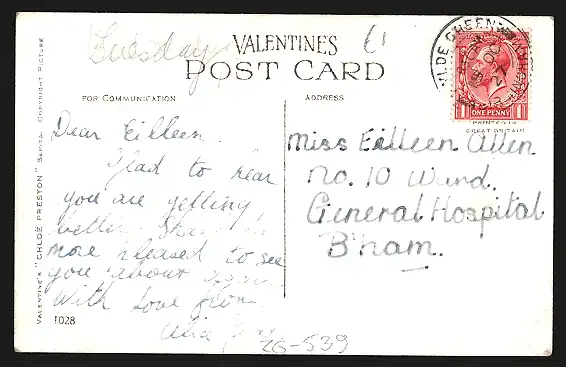 Tuesday
£1
VALENTINE'S
POST CARD
FOR COMMUNICATION
ADDRESS
Dear Eilleen.
Glad to hear
you are getting
better.
more pleased to see
you about
With Love from
Miss Eilleen Allen
No. 10 Ward.
General Hospital
B'ham.
ONE PENNY
PRINTED IN
GREAT BRITAIN
VALENTINE'S "CHLOË PRESTON" SERIES. COPYRIGHT PICTURE
1028
26-539